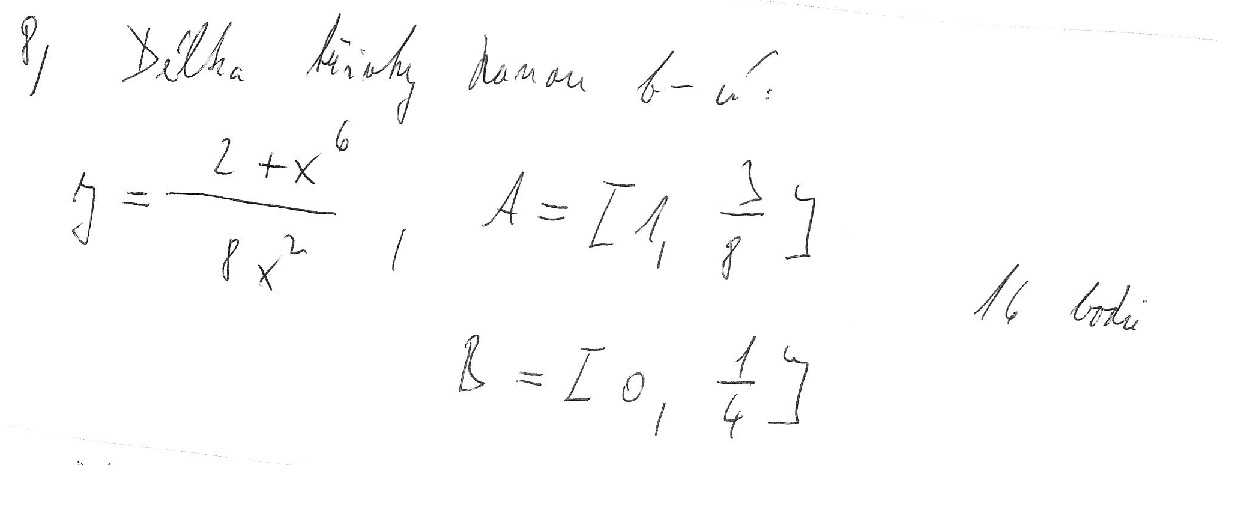 8, Délka křivky danou b-ů:
y = \frac{2 + x^6}{8x^2} , A = [1, \frac{3}{8}]
16 bodů
B = [0, \frac{1}{4}]